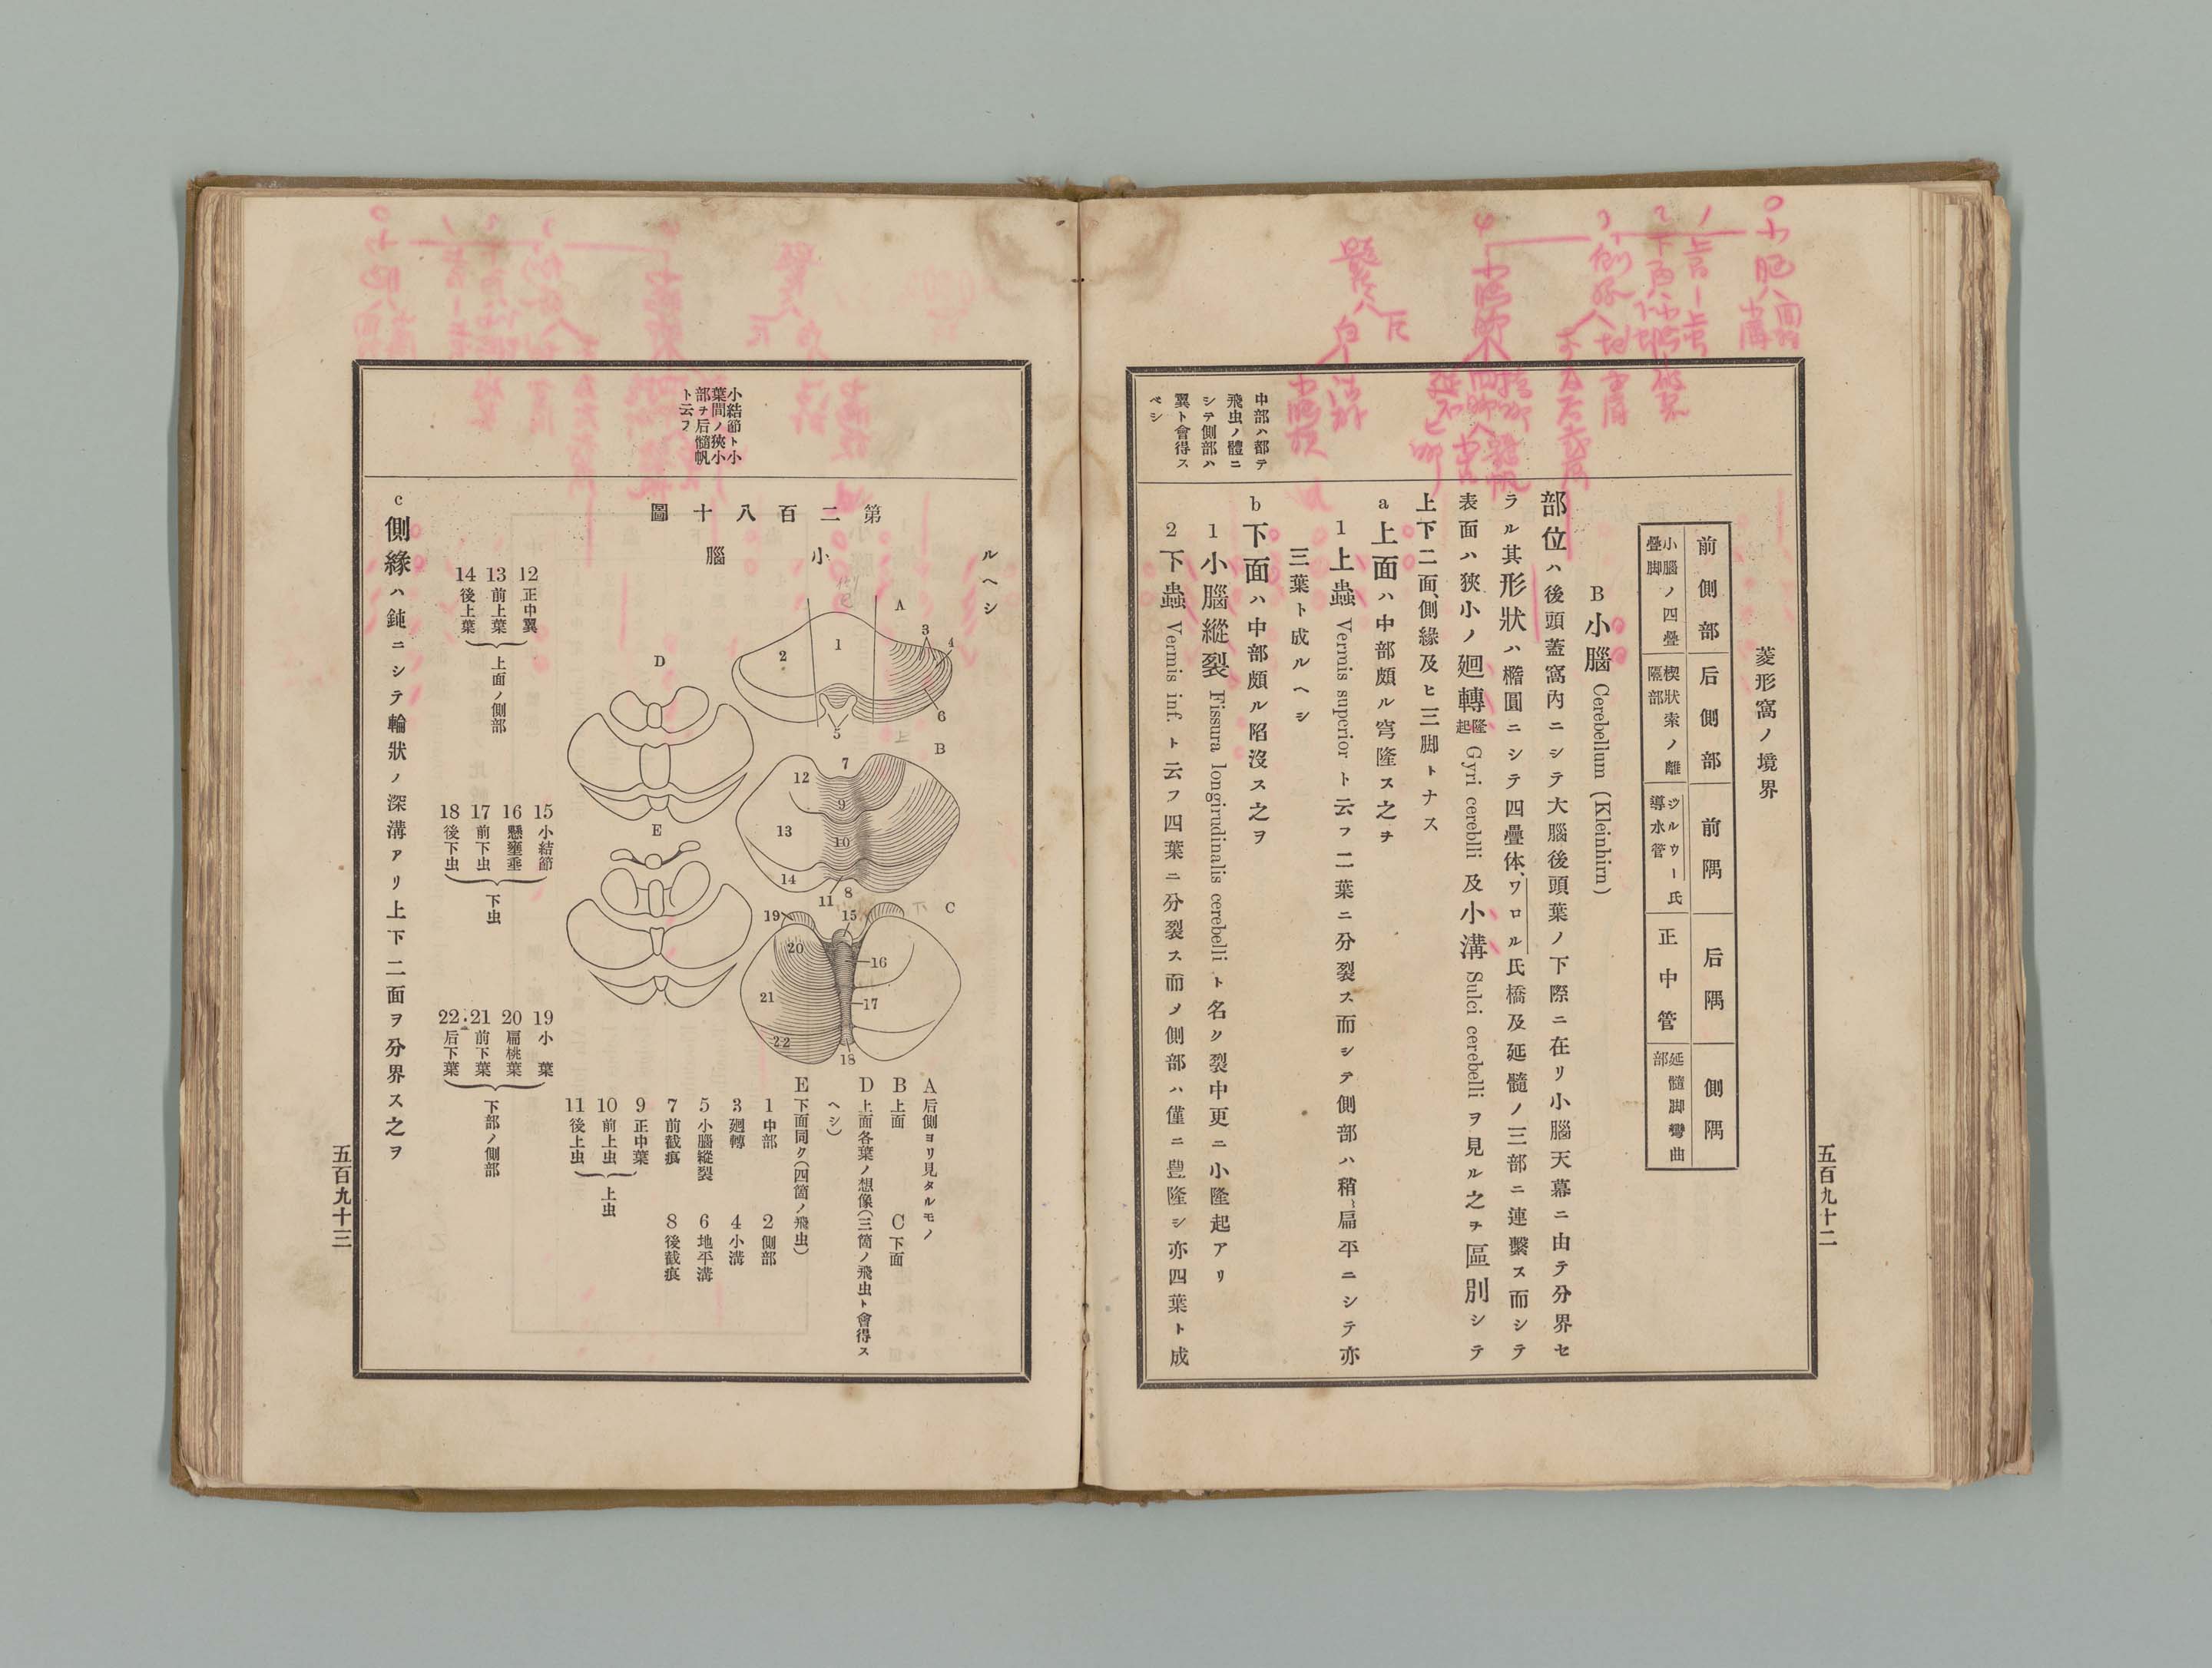 五百九十二
菱形窩ノ境界
前側部
后側部
前隅
后隅
側隅
小腦ノ四疊
疊脚
楔狀索ノ離
隔部
シルウー氏
導水管
正中管
延髓脚彎曲
部
B 小腦 Cerebellum (Kleinhirn)
部位ハ後頭蓋窩內ニシテ大腦後頭葉ノ下際ニ在リ小腦天幕ニ由テ分界セ
ラル其形狀ハ橢圓ニシテ四疊体、ワロル氏橋及延髓ノ三部ニ連繫ス而シテ
表面ハ狹小ノ廻轉隆起 Gyri cereblli 及小溝 Sulci cerebelli ヲ見ル之ヲ區別シテ
上下二面、側緣及ヒ三脚トナス
a 上面ハ中部頗ル穹隆ス之ヲ
1 上蟲 Vermis superior ト云フ二葉ニ分裂ス而シテ側部ハ稍、扁平ニシテ亦
三葉ト成ルヘシ
b 下面ハ中部頗ル陷沒ス之ヲ
1 小腦縱裂 Fissura longirudinalis cerebelli ト名ク裂中更ニ小隆起アリ
2 下蟲 Vermis inf. ト云フ四葉ニ分裂ス而ノ側部ハ僅ニ豊隆シ亦四葉ト成
中部ハ都テ
飛虫ノ體ニ
シテ側部ハ
翼ト會得ス
ベシ
ルヘシ
第二百八十圖
小腦
A
1
2
3
4
5
6
B
7
12
9
13
10
14
11
8
C
19
15
20
16
21
17
22
18
D
E
A 后側ヨリ見タルモノ
B 上面
C 下面
D 上面各葉ノ想像(三箇ノ飛虫ト會得ス
ヘシ)
E 下面同ク(四箇ノ飛虫)
1 中部
2 側部
3 廻轉
4 小溝
5 小腦縱裂
6 地平溝
7 前截痕
8 後截痕
9 正中葉
10 前上虫
11 後上虫
上虫
12 正中翼
13 前上葉
14 後上葉
上面ノ側部
15 小結節
16 懸壅垂
17 前下虫
18 後下虫
下虫
19 小葉
20 扁桃葉
21 前下葉
22 后下葉
下部ノ側部
c 側緣ハ鈍ニシテ輪狀ノ深溝アリ上下二面ヲ分界ス之ヲ
小結節ト小
葉間ノ狹小
部ヲ后髓帆
ト云フ
五百九十三